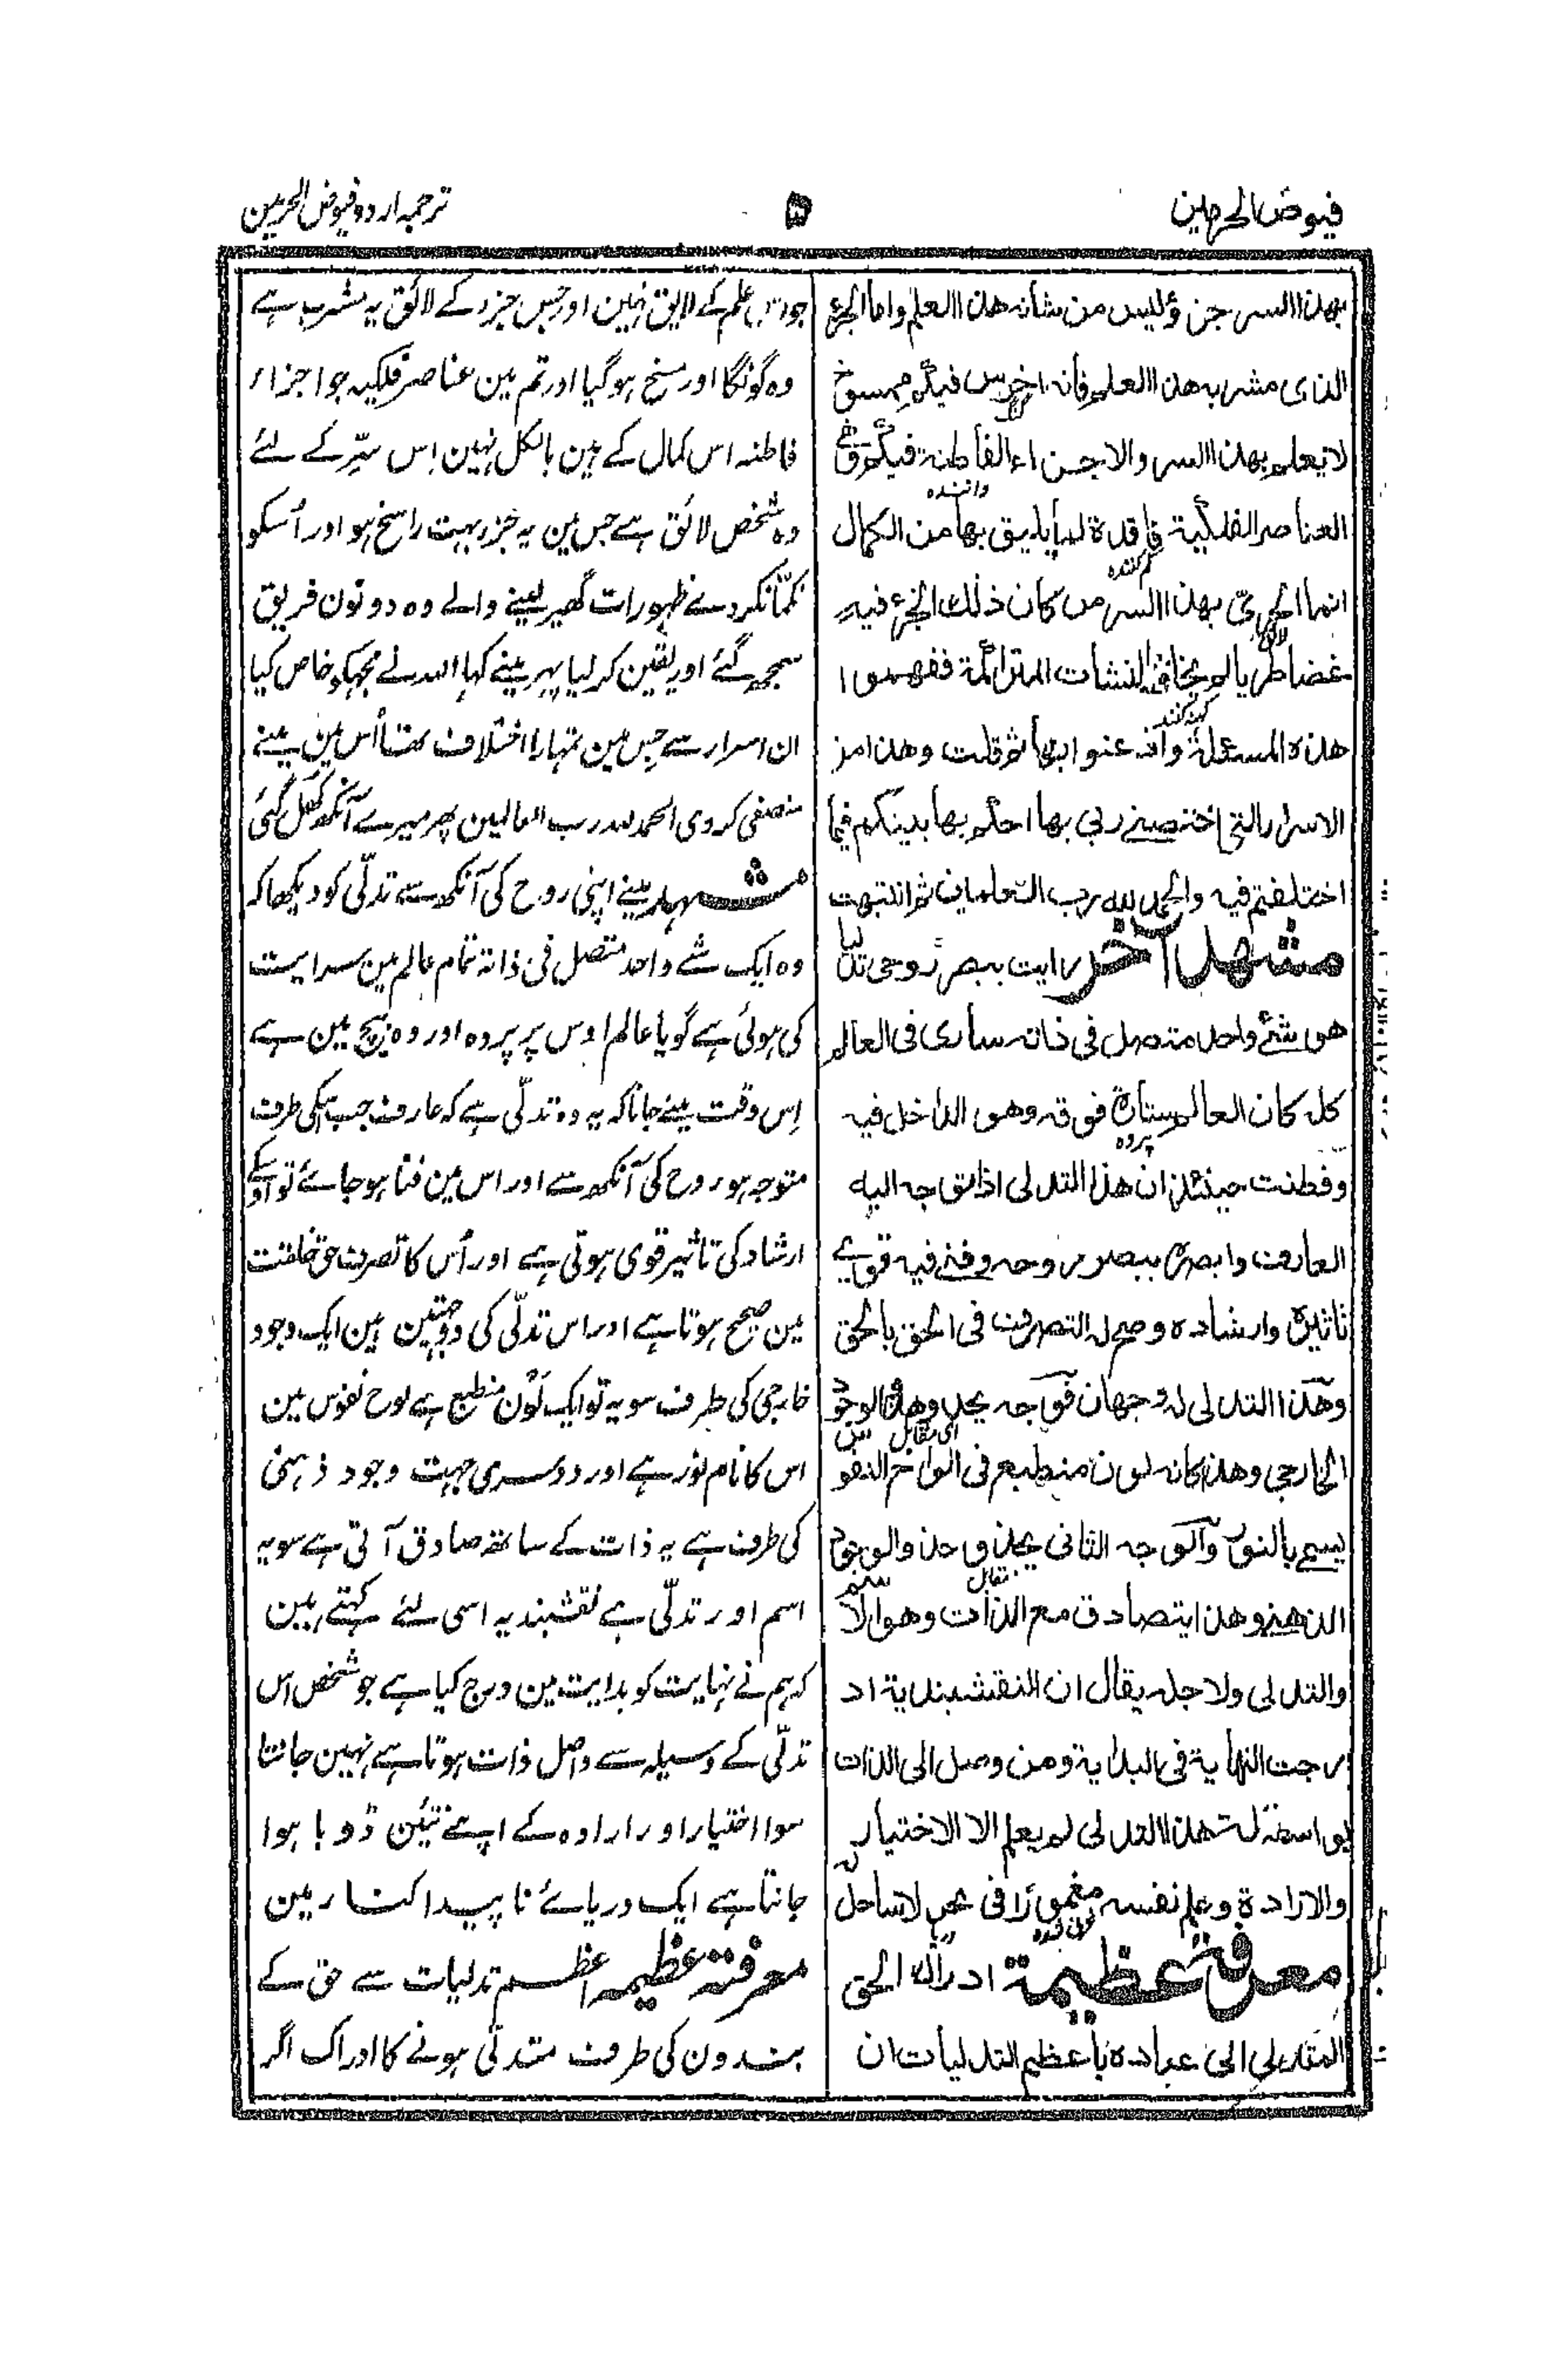 فیوض الحرمین
۵
ترجمہ اردو فیوض الحرمین
بهذا السر جزؤ لیس من شأنه هذا العلم واما الجزء
الذی مشربه هذا العلم فأنه اخرس فیکم ممسوخ
لا یعلم بهذا السر والاجزاء الفأطنة فیکم فی
داننده
العناصر الفلکیة فاقدة لمأ یلیق بهأ من الکمال
گم کننده
انما الحری بهذا السر من کان ذلك الجزء فیه
لائق
غضا طریا لم یخلقه النشات المتراکمة ففهموا
کہنہ کنند
هذه المسئلة واذعنوا بهأ ثم قلت وهذا من
الاسرار التی اختصنے ربی بهأ احکم بهأ بینکم فیمأ
اختلفتم فیه والحمد لله رب العلمین ثم انتبهت
مشهد آخر رایت ببصر روحی تدلیا
هو شئ واحد متصل فی ذاته ساری فی العالم
کله کان العالم ستارة فوقه وهو الداخل فیه
پرده
وفطنت حینئذ ان هذا التدلی اذا توجه الیه
العارف وابصره ببصر روحه وفنے فیه قوے
تاثیره وارشاده وصح له التصرف فی الخلق بالحق
وهذا التدلی له وجهان فوجه یحذو حذو الوجود
ای مقابل
الخارجی وهذا کانه لون منطبع فی الواح النفوس
یسمے بالنور والوجه الثانی یحذو حذو الوجود
مقابل
الذهنی وهذا یتصادق مع الذات وهو الاسم
والتدلی ولاجله یقال ان النقشبندیة اد
رجت النهأیة فی البدایة ومن وصل الی الذات
بواسطة هذا التدلی لم یعلم الا الاختیار
والارادة وعلم نفسه مغمورا فی بحر لا ساحل له
غرق شده دریا
معرفة عظیمة ادراك الحق
المتدلی الی عباده بأعظم التدلیأت ان
جو اس علم کے لایق نہین اور جس جزر کے لائق یہ مشرب ہے
وہ گونگا اور مسخ ہوگیا اور تم مین عناصر فلکیہ جو اجزاء
فاطنہ اس کمال کے ہین بالکل نہین اِس سِرّ کے لئے
وہ شخص لائق ہے جس مین یہ جزر بہت راسخ ہو اور اُسکو
نکمّا نکر دے ظہورات گھیر لینے والے وہ دونون فریق
سمجھ گئے اور یقین کر لیا پہر مینے کہا اللہ نے مجہکو خاص کیا
ان اسرار سے جس مین تمہارا اختلاف تھا اُس مین مینے
منصفی کردی الحمد للہ رب العالمین پھر میرے آنکھ کھل گئی
مشہد مینے اپنی روح کی آنکھ سے تدلّی کو دیکھا کہ
وہ ایک شے واحد متصل فی ذاتہ تمام عالم مین سرایت
کی ہوئی ہے گویا عالم اوس پر پردہ اور وہ بیچ مین ہے
اِس وقت مینے جانا کہ یہ وہ تدلّی ہے کہ عارف جب اسکی طرف
متوجہ ہو روح کی آنکھ سے اور اس مین فنا ہو جائے تو اوسکے
ارشاد کی تاثیر قوی ہوتی ہے اور اُس کا تصرف حق خلقت
مین صحیح ہوتا ہے اور اس تدلّی کی دو جہتین ہین ایک وجود
خارجی کی طرف سو یہ تو ایک لَوْن منطبع ہے لوح نفوس مین
اس کا نام نور ہے اور دوسری جہت وجود ذہنی
کی طرف ہے یہ ذات کے ساتھ صادق آتی ہے سو یہ
اسم اور تدلّی ہے نقشبندیہ اسی لئے کہتے ہین
کہ ہم نے نہایت کو بدایت مین درج کیا ہے جو شخص اس
تدلّی کے وسیلہ سے واصل ذات ہوتا ہے نہین جانتا
سوا اختیار اور ارادہ کے اپنے تئین ڈوبا ہوا
جانتا ہے ایک دریائے ناپیدا کنار مین
معرفتہ عظیمہ اعظم تدلیات سے حق کے
بندون کی طرف متدلّی ہونے کا ادراک اگر